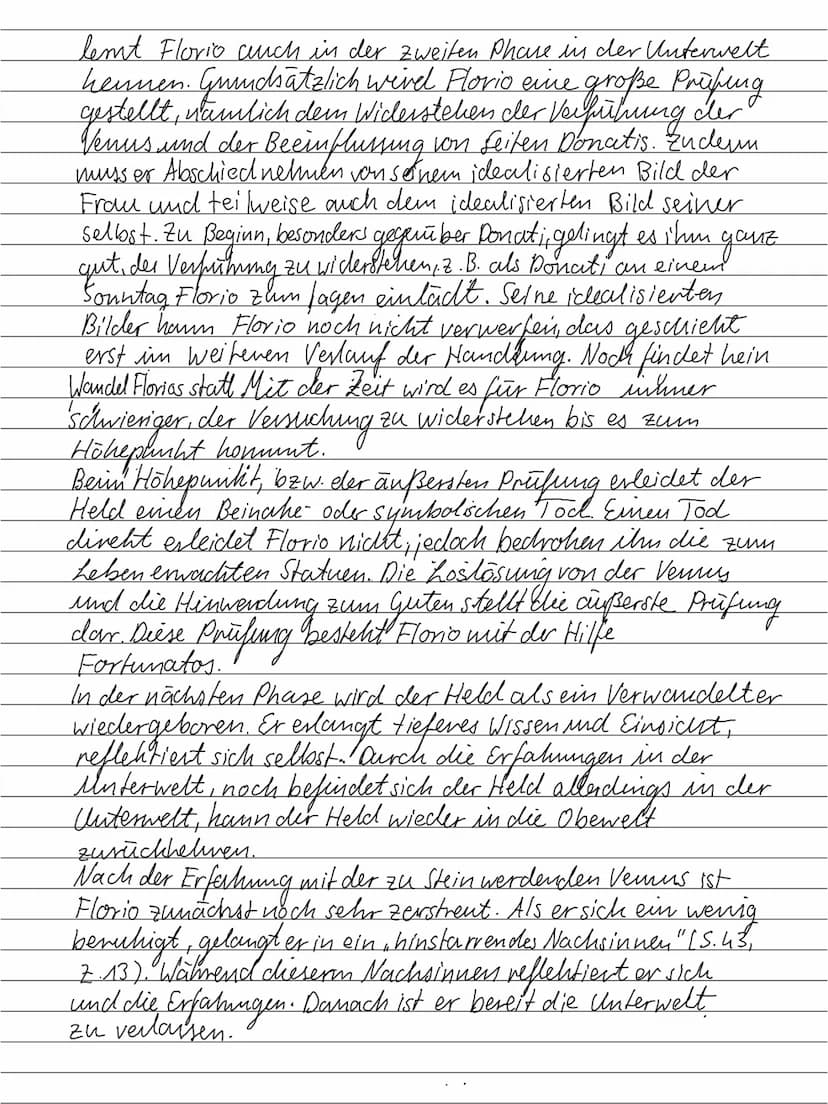 lernt Florio auch in der zweiten Phase in der Unterwelt
kennen. Grundsätzlich wird Florio eine große Prüfung
gestellt, nämlich dem Widerstehen der Verführung der
Venus und der Beeinflussung von Seiten Donatis. Zudem
muss er Abschied nehmen von seinem idealisierten Bild der
Frau und teilweise auch dem idealisierten Bild seiner
selbst. Zu Beginn, besonders gegenüber Donati, gelingt es ihm ganz
gut, der Verführung zu widerstehen, z.B. als Donati an einem
Sonntag Florio zum Jagen einlädt. Seine idealisierten
Bilder kann Florio noch nicht verwerfen, das geschieht
erst im weiteren Verlauf der Handlung. Noch findet kein
Wandel Florios statt. Mit der Zeit wird es für Florio immer
schwieriger, der Versuchung zu widerstehen bis es zum
Höhepunkt kommt.
Beim Höhepunkt, bzw. der äußersten Prüfung erleidet der
Held einen Beinahe- oder symbolischen Tod. Einen Tod
direkt erleidet Florio nicht, jedoch bedrohen ihn die zum
Leben erwachten Statuen. Die Loslösung von der Venus
und die Hinwendung zum Guten stellt die äußerste Prüfung
dar. Diese Prüfung besteht Florio mit der Hilfe
Fortunatos.
In der nächsten Phase wird der Held als ein Verwandelter
wiedergeboren. Er erlangt tieferes Wissen und Einsicht,
reflektiert sich selbst. Durch die Erfahrungen in der
Unterwelt, noch befindet sich der Held allerdings in der
Unterwelt, kann der Held wieder in die Oberwelt
zurückkehren.
Nach der Erfahrung mit der zu Stein werdenden Venus ist
Florio zunächst noch sehr zerstreut. Als er sich ein wenig
beruhigt, gelangt er in ein „hinstarrendes Nachsinnen" (S.43,
Z.13). Während diesem Nachsinnen reflektiert er sich
und die Erfahrungen. Danach ist er bereit die Unterwelt
zu verlassen.